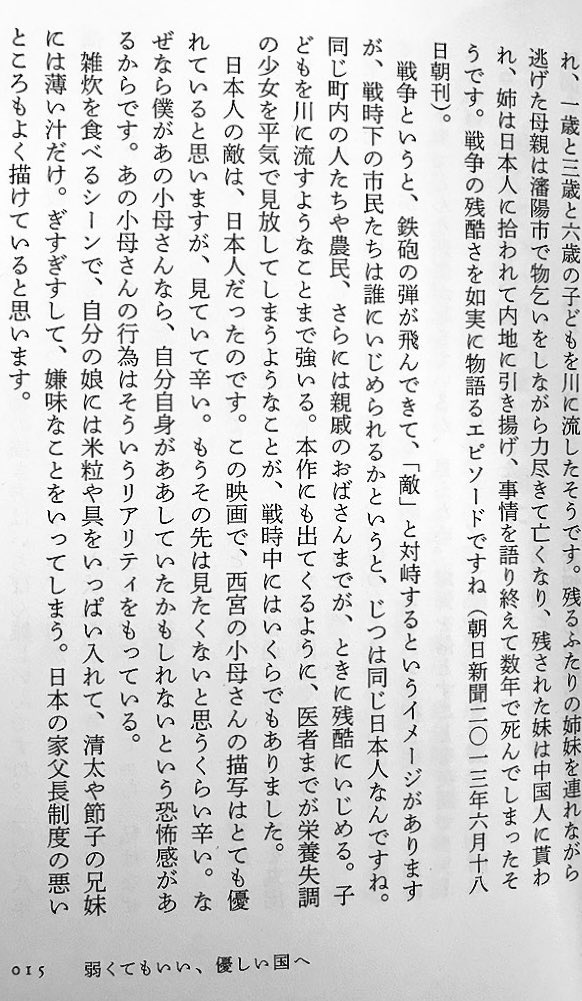 れ、一歳と三歳と六歳の子どもを川に流したそうです。残るふたりの姉妹を連れながら
逃げた母親は瀋陽市で物乞いをしながら力尽きて亡くなり、残された妹は中国人に貰わ
れ、姉は日本人に拾われて内地に引き揚げ、事情を語り終えて数年で死んでしまったそ
うです。戦争の残酷さを如実に物語るエピソードですね（朝日新聞二〇一三年六月十八
日朝刊）。
戦争というと、鉄砲の弾が飛んできて、「敵」と対峙するというイメージがあります
が、戦時下の市民たちは誰にいじめられるかというと、じつは同じ日本人なんですね。
同じ町内の人たちや農民、さらには親戚のおばさんまでが、ときに残酷にいじめる。子
どもを川に流すようなことまで強いる。本作にも出てくるように、医者までが栄養失調
の少女を平気で見放してしまうようなことが、戦時中にはいくらでもありました。
日本人の敵は、日本人だったのです。この映画で、西宮の小母さんの描写はとても優
れていると思いますが、見ていて辛い。もうその先は見たくないと思うくらい辛い。な
ぜなら僕があの小母さんなら、自分自身がああしていたかもしれないという恐怖感があ
るからです。あの小母さんの行為はそういうリアリティをもっている。
雑炊を食べるシーンで、自分の娘には米粒や具をいっぱい入れて、清太や節子の兄妹
には薄い汁だけ。ぎすぎすして、嫌味なことをいってしまう。日本の家父長制度の悪い
ところもよく描けていると思います。
015 弱くてもいい、優しい国へ